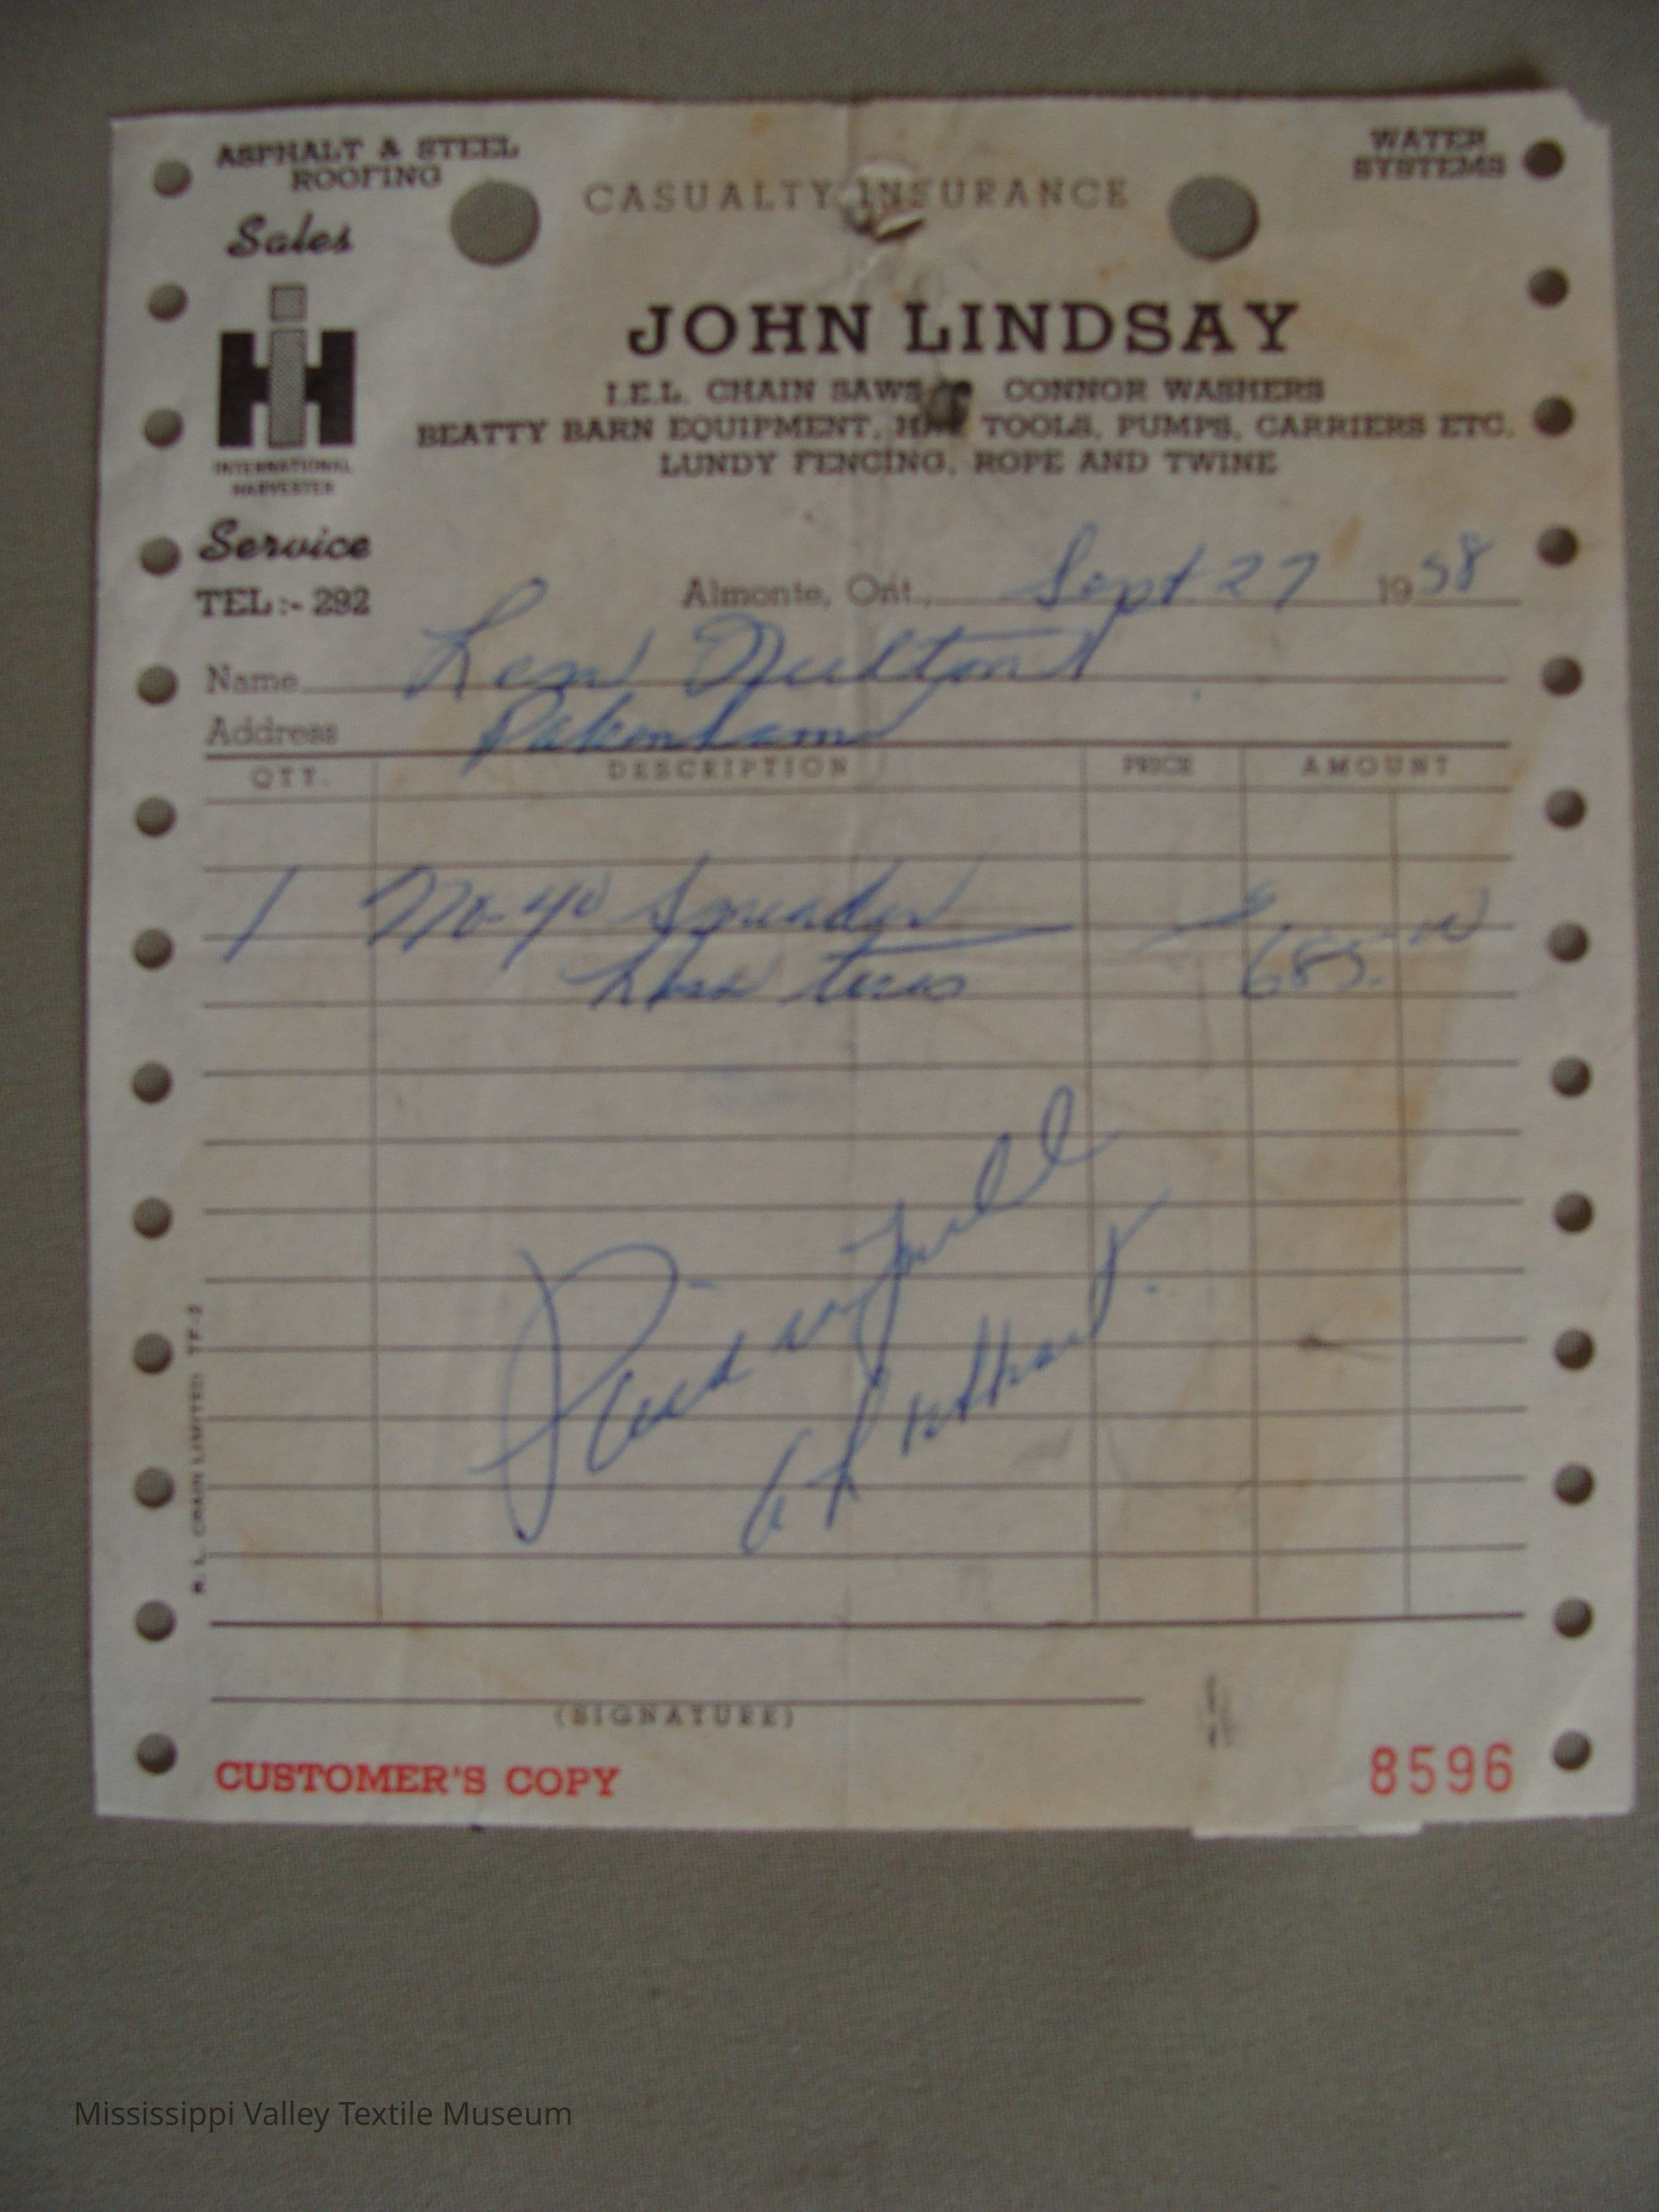 ASPHALT & STEEL
ROOFING
WATER
SYSTEMS
CASUALTY INSURANCE
Sales
JOHN LINDSAY
I.E.L. CHAIN SAWS CONNOR WASHERS
BEATTY BARN EQUIPMENT, TOOLS, PUMPS, CARRIERS ETC.
LUNDY FENCING, ROPE AND TWINE
IH
INTERNATIONAL
HARVESTER
Service
TEL:- 292
Almonte, Ont., Sept 27 1958
Name
Address Pakenham
QTY. DESCRIPTION PRICE AMOUNT
1 No-40 Spreader
Less tires 685.00
Paid in full
R. L. CRAIN LIMITED TF-2
(SIGNATURE)
CUSTOMER'S COPY 8596
Mississippi Valley Textile Museum